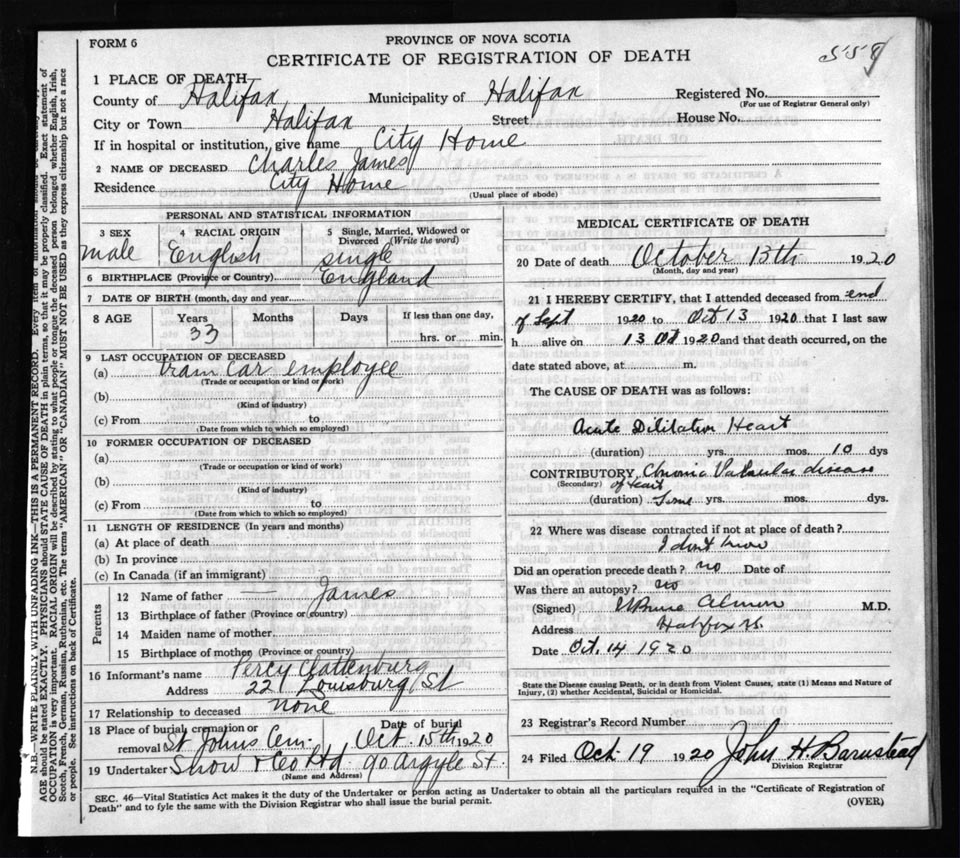 FORM 6
PROVINCE OF NOVA SCOTIA
CERTIFICATE OF REGISTRATION OF DEATH
558
1 PLACE OF DEATH
County of Halifax Municipality of Halifax Registered No.
(For use of Registrar General only)
City or Town Halifax Street House No.
If in hospital or institution, give name City Home
2 NAME OF DECEASED Charles James
Residence City Home
(Usual place of abode)
PERSONAL AND STATISTICAL INFORMATION
3 SEX male
4 RACIAL ORIGIN English
5 Single, Married, Widowed or Divorced (Write the word) single
6 BIRTHPLACE (Province or Country) England
7 DATE OF BIRTH (month, day and year)
8 AGE Years 33 Months Days If less than one day, hrs. or min.
9 LAST OCCUPATION OF DECEASED
(a) Tram Car employee
(Trade or occupation or kind of work)
(b)
(Kind of industry)
(c) From to
(Date from which to which so employed)
10 FORMER OCCUPATION OF DECEASED
(a)
(Trade or occupation or kind of work)
(b)
(Kind of industry)
(c) From to
(Date from which to which so employed)
11 LENGTH OF RESIDENCE (In years and months)
(a) At place of death
(b) In province
(c) In Canada (if an immigrant)
Parents
12 Name of father — James
13 Birthplace of father (Province or country)
14 Maiden name of mother
15 Birthplace of mother (Province or country)
16 Informant's name Percy Clattenburg
Address 221 Louisburg St
17 Relationship to deceased none
18 Place of burial, cremation or removal St Johns Cem. Date of burial Oct. 15th 1920
19 Undertaker Snow & Co Ltd 90 Argyle St.
(Name and Address)
MEDICAL CERTIFICATE OF DEATH
20 Date of death October 13th 1920
(Month, day and year)
21 I HEREBY CERTIFY, that I attended deceased from end
of Sept 1920 to Oct 13 1920 that I last saw
h alive on 13 Oct 1920 and that death occurred, on the
date stated above, at m.
The CAUSE OF DEATH was as follows:
Acute Dilitation Heart
(duration) yrs. mos. 10 dys
CONTRIBUTORY Chronic Valvular disease
(Secondary) of heart
(duration) yrs. mos. dys.
22 Where was disease contracted if not at place of death?
I dont know
Did an operation precede death? no Date of
Was there an autopsy? no
(Signed) Almon M.D.
Address Halifax NS.
Date Oct. 14 1920
State the Disease causing Death, or in death from Violent Causes, state (1) Means and Nature of
Injury, (2) whether Accidental, Suicidal or Homicidal.
23 Registrar's Record Number
24 Filed Oct 19 1920 John H. Barnstead
Division Registrar
SEC. 46—Vital Statistics Act makes it the duty of the Undertaker or person acting as Undertaker to obtain all the particulars required in the "Certificate of Registration of
Death" and to fyle the same with the Division Registrar who shall issue the burial permit.
(OVER)
N.B.—WRITE PLAINLY WITH UNFADING INK—THIS IS A PERMANENT RECORD. Every item of information should be
AGE should be stated EXACTLY. PHYSICIANS should STATE CAUSE OF DEATH in plain terms, so that it may be properly classified. Exact statement of
OCCUPATION is very important. RACIAL ORIGIN will be described by stating to what people or tongue the deceased person belonged whether English, Irish,
Scotch, French, German, Russian, Ruthenian, etc. The terms "AMERICAN" OR "CANADIAN" MUST NOT BE USED as they express citizenship but not a race
or people. See instructions on back of Certificate.